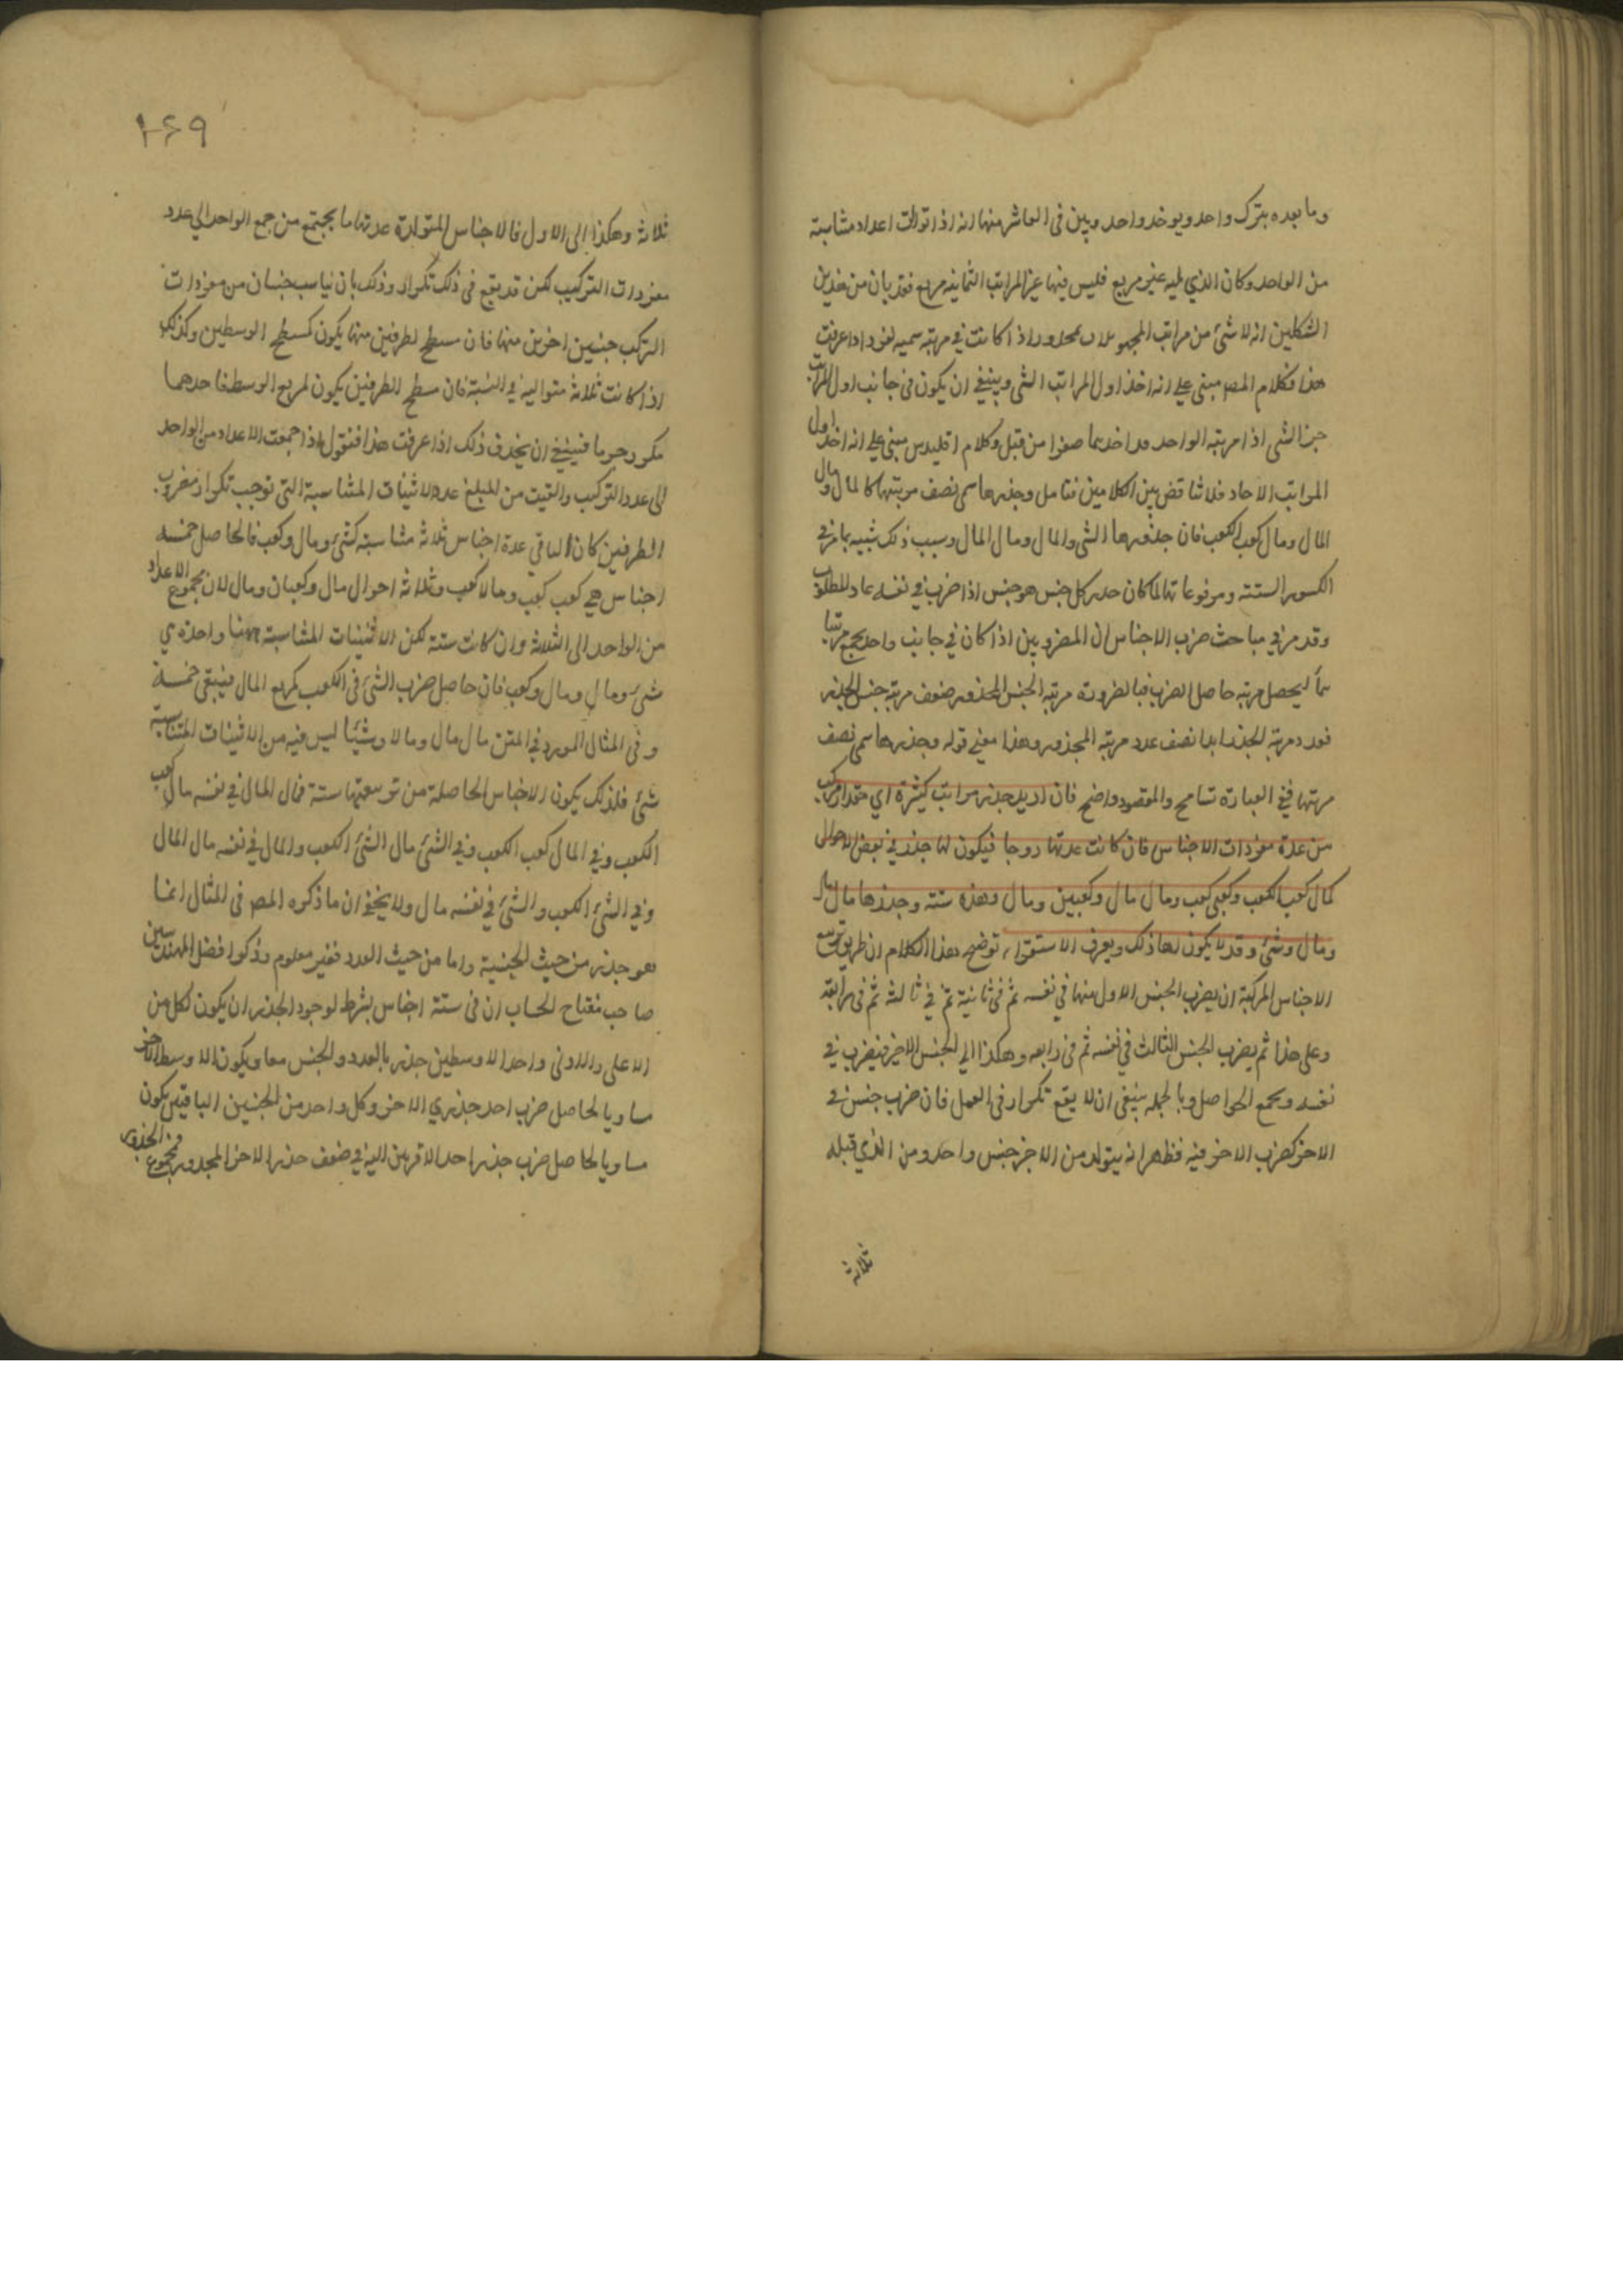 وما بعده بترك واحد ويوخذ واحد وبين فى العاشر منها انه اذا توالت اعداد متناسبة
من الواحد وكان الذي يليه غير مربع فليس فيها غير المراتب الثمانيه مربع فقد بان من هذين
الشكلين انه لا شئ من مراتب المجهولات بمجذور اذا كانت في مرتبه سميه لفرد اذا عرفت
هذا فكلام المص مبنى على انه اخذ اول المراتب الشى وينبغي ان يكون فى جانب اول المراتب
جزء الشى اذا مرتبه الواحد قد اخذها صفرا من قبل وكلام اقليدس مبنى على انه اخذ اول
المراتب الاحاد فلا تناقض بين الكلامين فتامل وجذرها سمى نصف مرتبتها كالمال ومال
المال ومال كعب الكعب فان جذورها الشى والمال ومال المال وسبب ذلك شبيه بما مر في
الكسور الستينه ومرفوعاتها لما كان جذر كل جنس هو جنس اذا ضرب في نفسه عاد للمطلوب
وقد مر في مباحث ضرب الاجناس ان المضروبين اذا كان في جانب واحد يجمع مرتبتا
هما ليحصل مرتبه حاصل الضرب فبالضرورة مرتبه الجنس المجذور ضعف مرتبة جنس الجذر
فعدد مرتبة الجذر ابدا نصف عدد مرتبه المجذور وهذا معني قوله وجذرها سمى نصف
مرتبتها في العبارة تسامح والمقصود واضح فان اريد جذر مراتب كثيرة اي مقدار مركب
من عدة مفردات الاجناس فان كانت عدتها زوجا فيكون لها جذر في بعض الاحوال
كمال كعب الكعب وكعبى كعب ومال مال وكعبين ومال وهذه ستة وجذرها مال مال
ومال وشئ وقد لا يكون لها ذلك ويعرف الاستقراء توضيح هذا الكلام ان طريق تربيع
الاجناس المركبة ان يضرب الجنس الاول منها في نفسه ثم فى ثانية ثم في ثالثه ثم فى رابعة
وعلى هذا ثم يضرب الجنس الثالث في نفسه ثم فى رابعه وهكذا الي الجنس الاخير فيضرب في
نفسه ويجمع الحواصل وبالجملة ينبغى ان لا يقع تكرار فى العمل فان ضرب جنس في
الاخر كضرب الاخر فيه فظهر انه يتولد من الاخر جنس واحد ومن الذي قبله
ثلاثة
١٦٩
ثلاثة وهكذا الى الاول فالاجناس المتولدة عدتها ما يجتمع من جمع الواحد الي عدد
مفردات التركيب لكن قد يقع فى ذلك تكرار وذلك بان يناسب جنسان من مفردات
التركب جنسين اخرين منها فان مسطح الطرفين منها يكون كمسطح الوسطين وكذلك
اذا كانت ثلاثة متوالية في النسبة فان مسطح الطرفين يكون لمربع الوسط فاحدهما
مكرر جرما فينبغي ان يحذف ذلك اذا عرفت هذا فنقول اذا جمعت الاعداد من الواحد
الى عدد التركيب والقيت من المبلغ عدد الاثنيات المتناسبة التى توجب تكرار مضروب
الطرفين كان الباقي عدة اجناس ثلاثة متناسبة كشئ ومال وكعب فالحاصل خمسه
اجناس هي كعب كعب ومالا كعب وثلاثة احوال مال وكعبان ومال لان مجموع الاعداد
من الواحد الى الثلاثة وان كانت ستة لكن الاثنينيات المتناسبة ههنا واحدة هي
شئ ومال ومال وكعب فان حاصل ضرب الشئ فى الكعب كمربع المال فيبقى خمسة
وفى المثال المورد في المتن مال مال ومالا وشيئا ليس فيه من الاثنينات المتناسبة
شئ فلذلك يكون الاجناس الحاصلة من تربيعها ستة فمال المال في نفسه مال كعب
الكعب وفي المال كعب الكعب وفي الشئ مال الشئ الكعب والمال في نفسه مال المال
وفي الشئ الكعب والشئ في نفسه مال ولا يخفى ان ما ذكره المص فى المثال انما
هو جذر من حيث الجنسية واما من حيث العدد فغير معلوم وذكر افضل المهندسين
صاحب مفتاح الحساب ان فى ستة اجناس بشرط لوجود الجذر ان يكون لكل من
الاعلى والادنى واحد الاوسطين جذر بالعدد والجنس معا ويكون الاوسط الاخر
مساويا لحاصل ضرب احد جذري الاخر وكل واحد من الجنسين الباقيين يكون
مساويا لحاصل ضرب جذر احد الاقربين اليه في ضعف جذر الاخر المجذور فمجموع الجذور